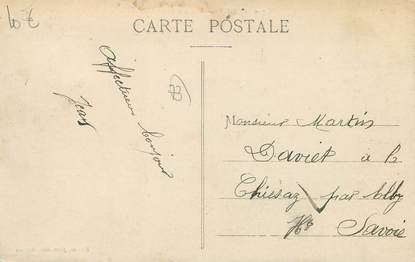 10 €
CARTE POSTALE
Affectueux bonjour
Jean
Monsieur Martin
Daviet à la
Chiésaz par Alby
Hte
Savoie